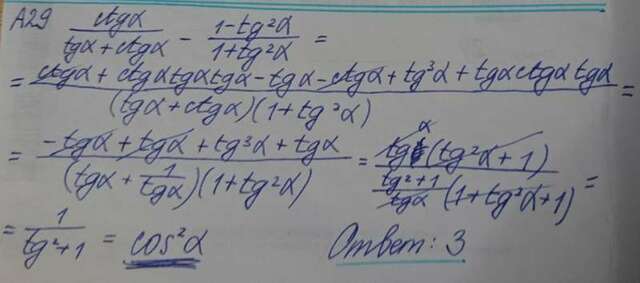 A29 ctgα/(tgα + ctgα) - (1-tg²α)/(1+tg²α) =
= (ctgα + ctgα tgα tgα - tgα - ctgα + tg³α + tgα ctgα tgα)/((tgα + ctgα)(1+tg²α)) =
= (-tgα + tgα + tg³α + tgα)/((tgα + 1/tgα)(1+tg²α)) = (tgα(tg²α+1))/((tg²+1)/tgα (1+tg²α+1)) =
= 1/(tg²+1) = cos²α Ответ: 3